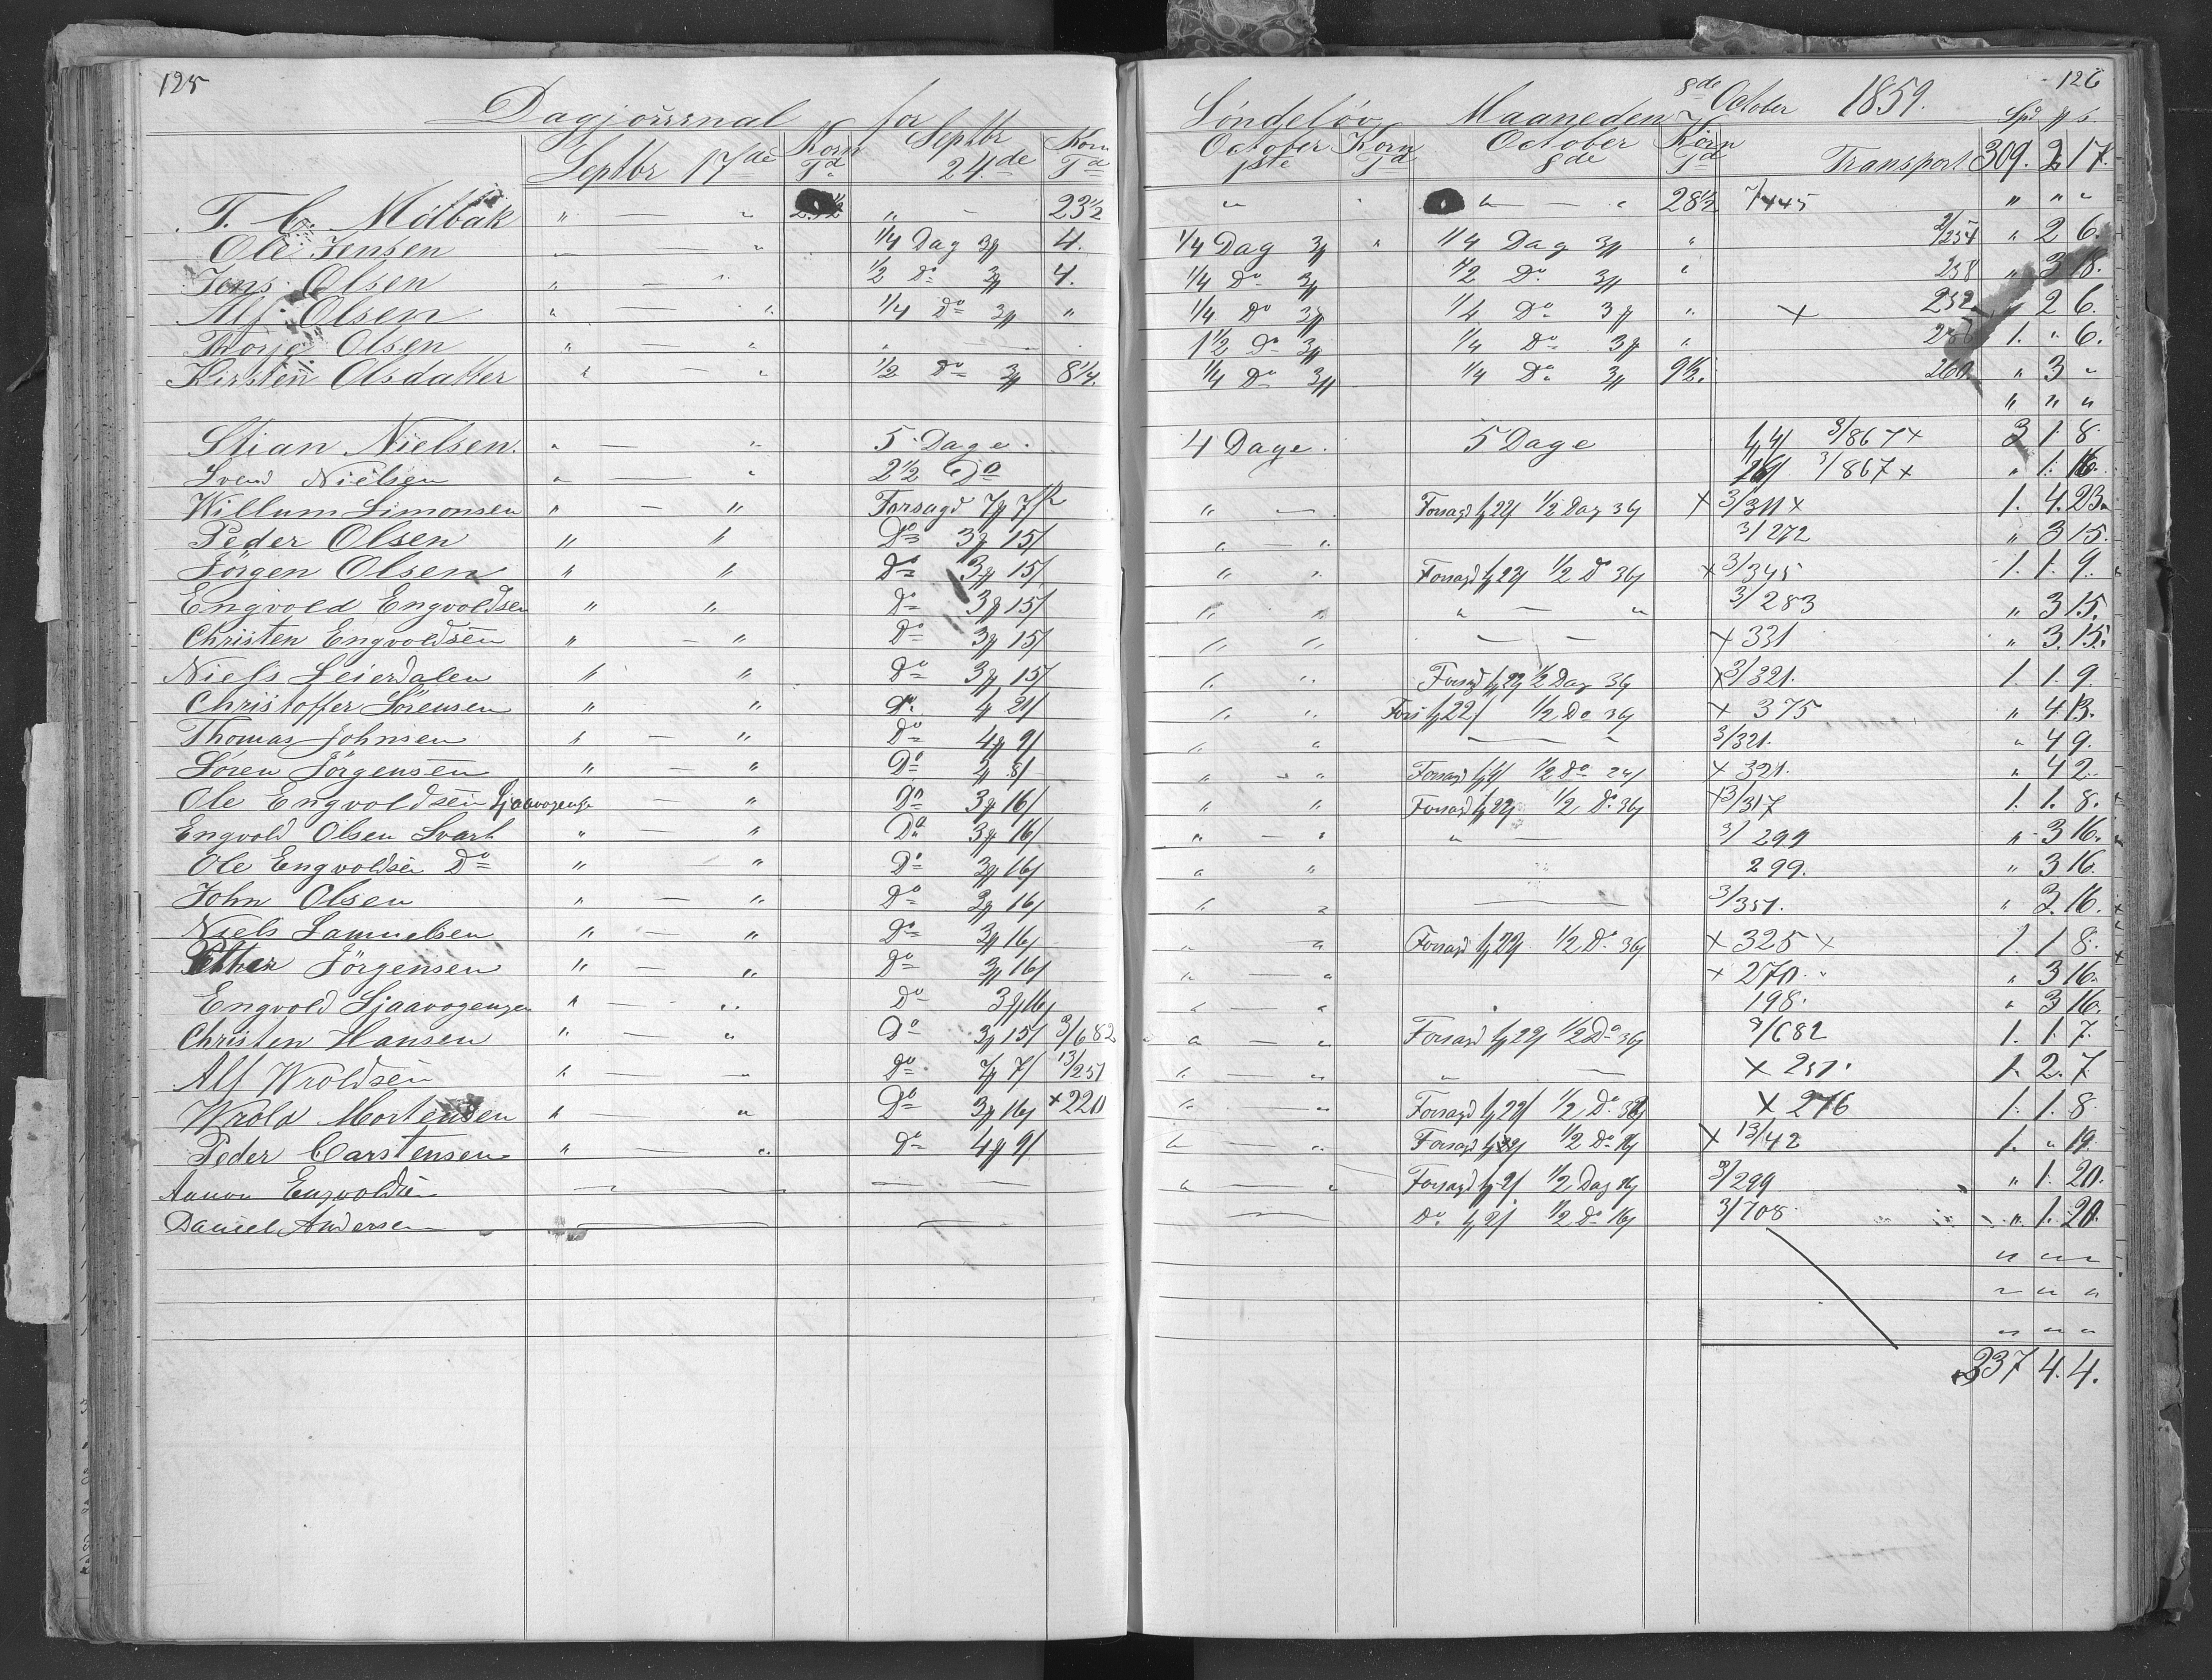 125 126
Dagjournal for Søndeløv Maaneden 8de October 1859.
Septbr 17de Korn Td Septbr 24.de Korn Td October 1ste Korn Td October 8de Korn Td Transport Spd 309. 2 17.
T. C. Mölbak " — " " — 23½ " " — " 28½ 7/445 " " "
Ole Jensen " — " ¼ Dag 3 4. ¼ Dag 3 " ¼ Dag 3 " 2/254 " 2 6.
Jens Olsen " — " ½ Do 3 4. ¼ Do 3 ½ Do 3 " 258 " 3 18.
Alf Olsen " — " ¼ Do 3 " ¼ Do 3 ¼ Do 3 " × 252 " 2 6.
Thorje Olsen " — " " — 1½ Do 3 ¼ Do 3 " 1. " 6.
Kirsten Olsdatter " — " ½ Do 3 8¼. ¼ Do 3 ¼ Do 3 9½. 260 " 3 "
" " "
Stian Nielsen. " — " 5 Dage. 4 Dage. 5 Dage 3/867 × 3 1. 8
Svend Nielsen " — " 2½ Do 3/867 × " 1. 16.
Willum Simonsen " — " Forsagd 7 7 " — Forsagd 22 ½ Dag 36 × 3/311 × 1. 4. 23.
Peder Olsen " " Do 3 15 " — " 3/272 " 3 15.
Jörgen Olsen " " Do 3 15 " " Forsagd 22 ½ Do 36 × 3/345 1. 1. 9.
Engvold Engvoldsen " " Do 3 15 " " " — " 3/283 " 3 15.
Christen Engvoldsen " — " Do 3 15 " " — — × 331 " 3. 15.
Niels Leierdalen " " Do 3 15 " " Forsagd 22 ½ Dag 36 × 3/321. 1. 1. 9
Christoffer Sörensen " " Do 4 21 " " Fors 22 ½ Do 36 × 375 " 4 13.
Thomas Johnsen " — " Do 4 9 " " — " 3/321. " 4 9.
Sören Jörgensen " — " Do 2 8 " — " Forsagd ½ Do 24 × 321. " 4 2.
Ole Engvoldsen Sjaavogenge " — " Do 3 16 " " Forsagd 22 ½ Do 36 × 3/317 1. 1. 8.
Engvold Olsen Svart " — " Do 3 16 " — " " — 3/299 " 3 16.
Ole Engvoldsen Do " " Do 3 16 " " 299. " 3 16.
John Olsen " — " Do 3 16 " " — 3/351. " 3. 16.
Niels Samuelsen " — " Do 3 16 " " Forsagd 22 ½ Do 36 × 325 × 1. 1. 8.
Petter Jörgensen " — " Do 3 16 " — " × 270. " 3 16.
Engvold Sjaavogengen " — " Do 3 16 " — " 198. " 3 16.
Christen Hansen " — " Do 3 15 3/682 " — " Forsagd 22 ½ Do 36 3/682 1. 1. 7.
Alf Wroldsen " — " Do 7 7 13/251 " — " " — × 251. 1. 2. 7.
Wrold Mortensen " — " Do 3 16 × 220 " — " Forsagd 22 ½ Do 36 × 276 1. 1. 8
Peder Carstensen " — " Do 4 9 " — " Forsagd ½ Do 16 × 13/42 1. " 19.
Aanon Engvoldsen — — — " — " Forsagd 2 ½ Dag 16 3/299 " 1. 20.
Daniel Andersen — — — Do 2 ½ Do 16 3/708. " 1. 20.
" " "
" " "
" " "
337 4. 4.